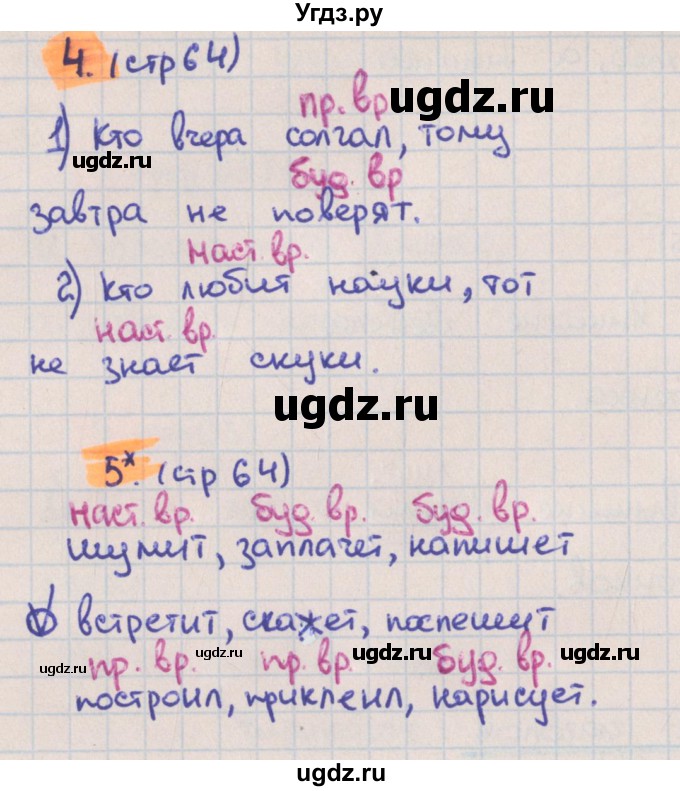 Угдз.ру
4. (стр 64)
пр. вр ugdz.ru
1) Кто вчера солгал, тому
ugdz.ru
буд. вр
завтра не поверят.
наст. вр.
2) Кто любит науки, тот
наст. вр.
не знает скуки.
ugdz.ru
5*. (стр 64)
наст. вр. буд. вр. буд. вр.
шумит, заплачет, напишет
V встретит, скажет, поспешут
ugdz.ru пр. вр. ugdz.ru пр. вр. буд. вр. ugdz.ru
построил, приклеил, нарисует.
ugdz.ru